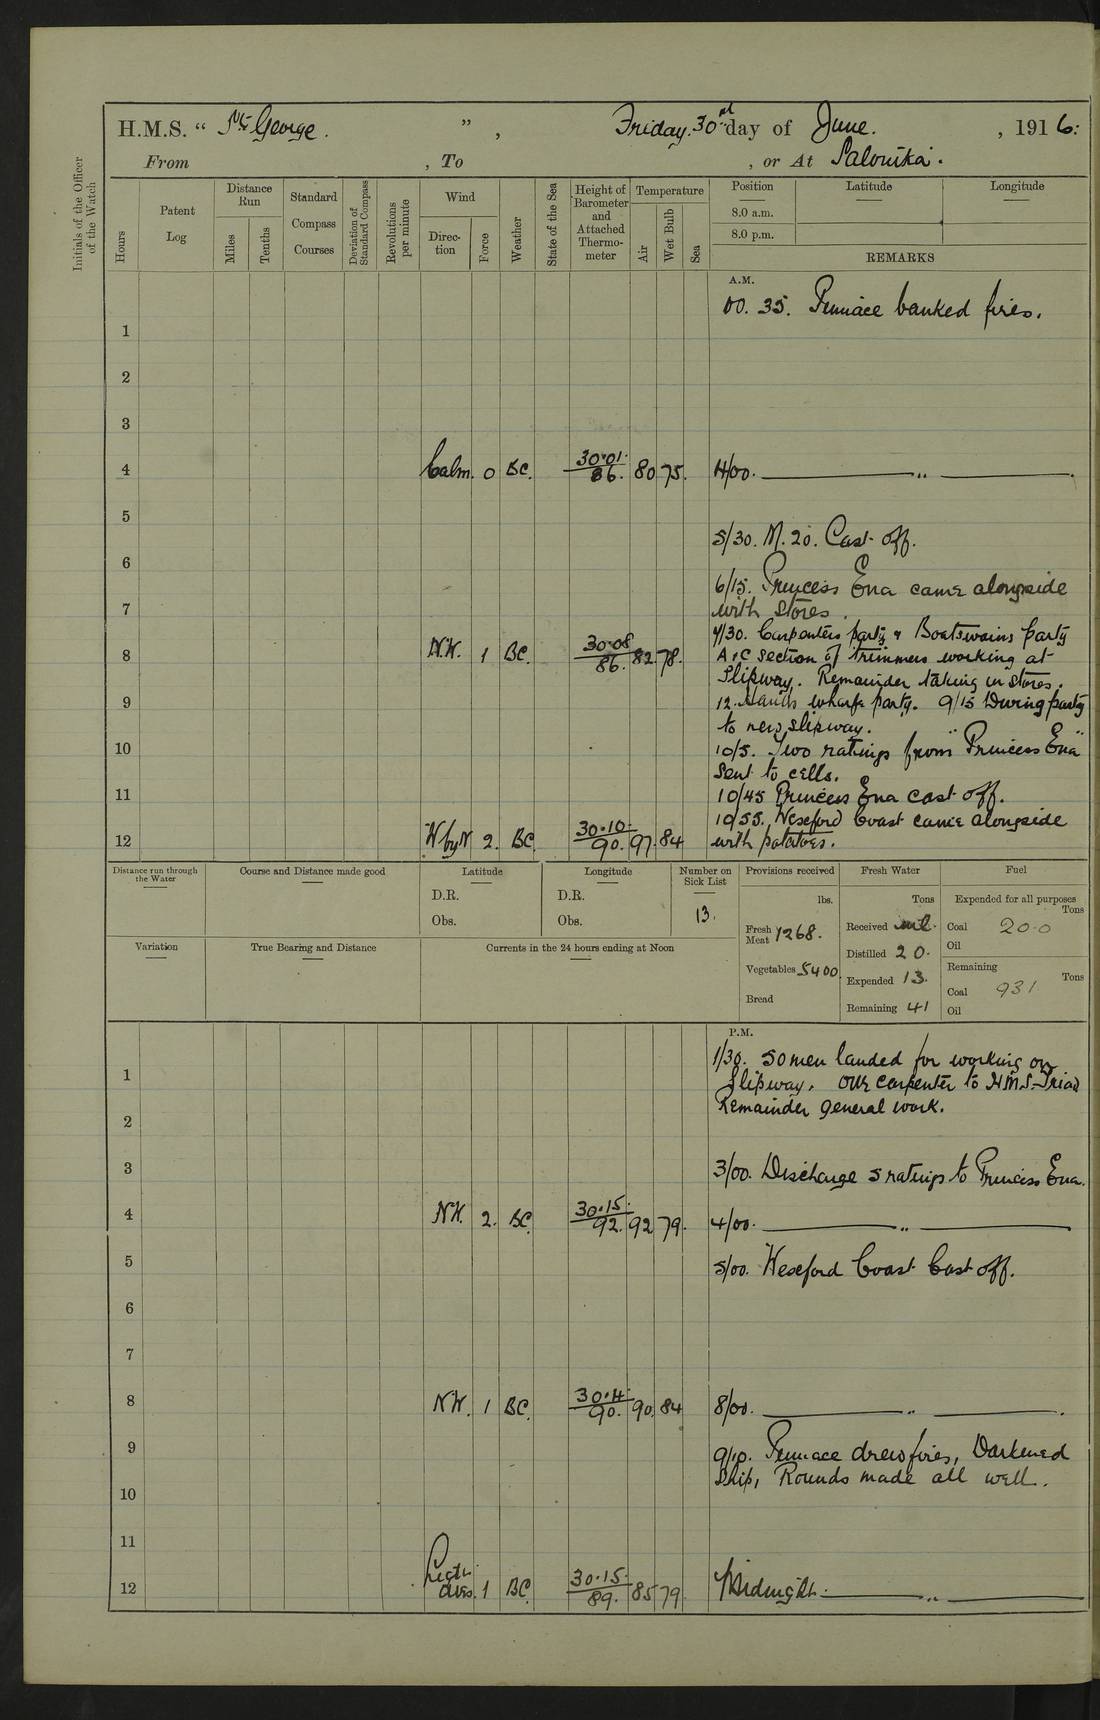 H.M.S. “ St. George. ” , Friday. 30th day of June. , 1916:
From , To , or At Salonika.
Initials of the Officer of the Watch
Hours
Patent Log
Distance Run
Miles
Tenths
Standard Compass Courses
Deviation of Standard Compass
Revolutions per minute
Wind
Direction
Force
Weather
State of the Sea
Height of Barometer and Attached Thermometer
Temperature
Air
Wet Bulb
Sea
Position Latitude Longitude
8.0 a.m.
8.0 p.m.
REMARKS
A.M.
00. 35. Pinnace banked fires.
1
2
3
4 Calm. 0 BC. 30.01. 86. 80 75. 4/00. ——— " ———.
5
5/30. M. 20. Cast off.
6
6/15. Princess Ena came alongside
7 with stores.
7/30. Carpenters party & Boatswains party
8 N.W. 1 BC. 30.08 86. 82. 78. A & C section of trimmers working at
Slipway. Remainder taking in stores.
9 12. Hands wharfe party. 9/15 Diving party
to new slipway.
10 10/5. Two ratings from "Princess Ena"
sent to cells.
11 10/45 Princess Ena cast off.
10/55. Wexford Coast came alongside
12 W by N 2. BC. 30.10. 90. 97. 84 with potatoes.
Distance run through the Water
Course and Distance made good
Latitude
D.R.
Obs.
Longitude
D.R.
Obs.
Number on Sick List
13.
Provisions received
lbs.
Fresh Meat 1268.
Vegetables 5400.
Bread
Fresh Water
Tons
Received nil.
Distilled 20.
Expended 13.
Remaining 41
Fuel
Expended for all purposes
Tons
Coal 20.0
Oil
Remaining
Tons
Coal 931
Oil
Variation
True Bearing and Distance
Currents in the 24 hours ending at Noon
P.M.
1/30. 50 men landed for working on
1 Slipway. One carpenter to H.M.S. Triad
Remainder general work.
2
3 3/00. Discharge 5 ratings to Princess Ena.
4 NW. 2. BC. 30.15. 92. 92 79. 4/00. ——— " ———
5 5/00. Wexford Coast Cast off.
6
7
8 NW. 1 BC. 90. 90. 84 8/00. ——— " ———.
9 9/10. Pinnace drew fires, Darkened
Ship, Rounds made all well.
10
11
12 Light airs. 1 BC. 30.15. 89. 85 79. Midnight. ——— " ———